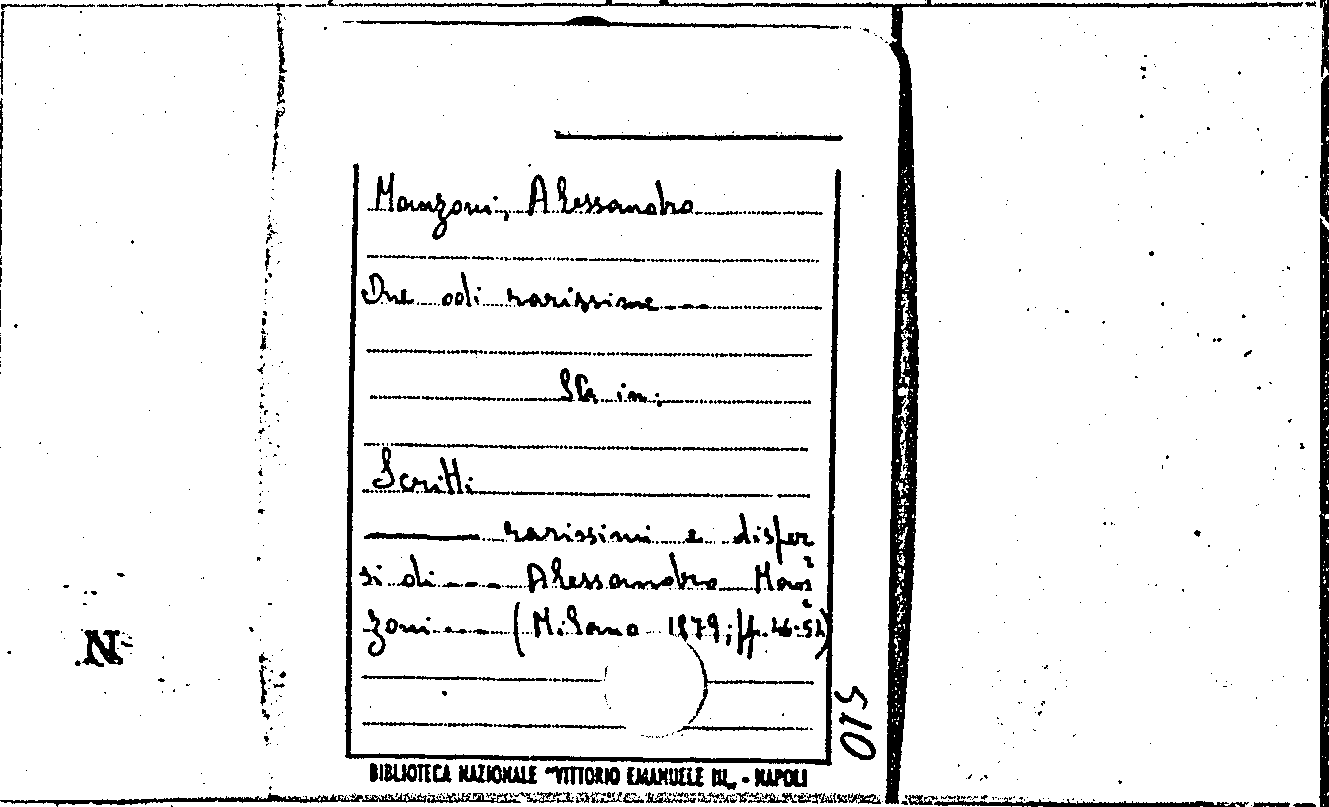 Manzoni, Alessandro
Due odi rarissime...
Sta in:
Scritti
rarissimi e disper
si di... Alessandro Man=
zoni... (Milano 1879; pp. 46-52)
N
510
BIBLIOTECA NAZIONALE "VITTORIO EMANUELE III„ - NAPOLI